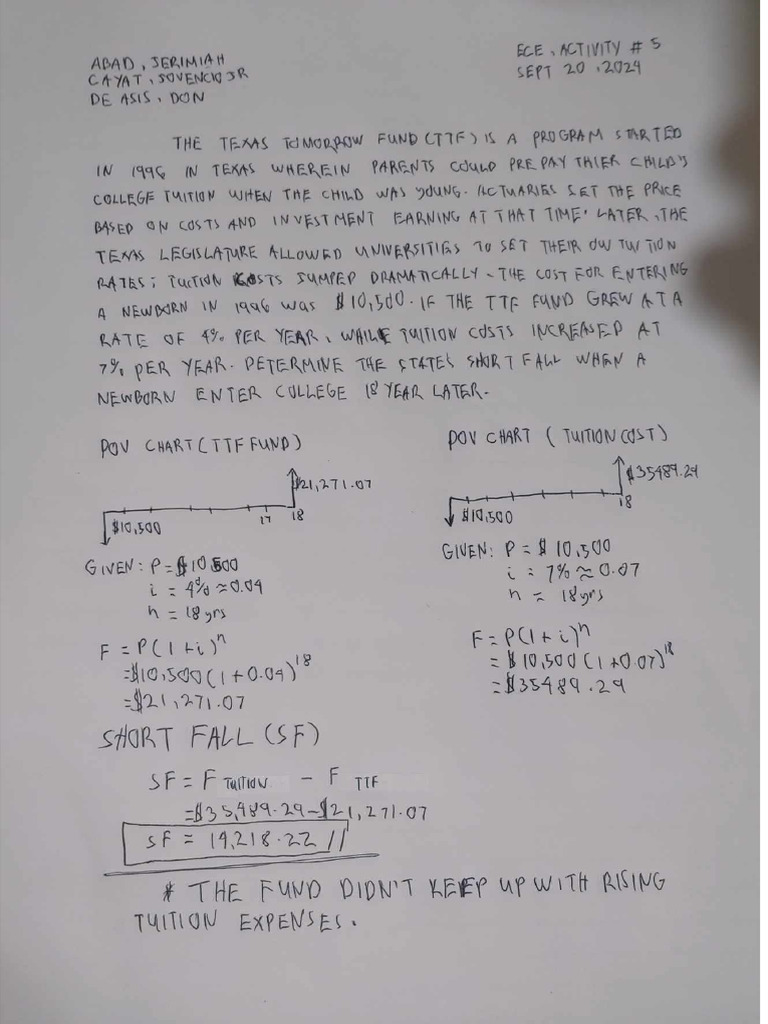 ABAD, JERIMIAH
CAYAT, JOVENCIO JR
DE ASIS, DON
ECE, ACTIVITY # 5
SEPT 20, 2024
THE TEXAS TOMORROW FUND (TTF) IS A PROGRAM STARTED
IN 1996 IN TEXAS WHEREIN PARENTS COULD PREPAY THIER CHILD'S
COLLEGE TUITION WHEN THE CHILD WAS YOUNG. ACTUARIES SET THE PRICE
BASED ON COSTS AND INVESTMENT EARNING AT THAT TIME. LATER, THE
TEXAS LEGISLATURE ALLOWED UNIVERSITIES TO SET THEIR OW TUITION
RATES; TUITION COSTS JUMPED DRAMATICALLY. THE COST FOR ENTERING
A NEWBORN IN 1996 WAS $10,500. IF THE TTF FUND GREW AT A
RATE OF 4% PER YEAR, WHILE TUITION COSTS INCREASED AT
7% PER YEAR. DETERMINE THE STATES SHORT FALL WHEN A
NEWBORN ENTER COLLEGE 18 YEAR LATER.
POV CHART (TTF FUND)
$21,271.07
$10,500
17 18
GIVEN: P = $10 500
i = 4% ≈ 0.04
n = 18 yrs
F = P(1+i)^n
= $10,500 (1+0.04)^18
= $21,271.07
POV CHART ( TUITION COST)
$35489.24
$10,500
18
GIVEN: P = $ 10,500
i = 7% ≈ 0.07
n = 18yrs
F = P(1+i)^n
= $10,500 (1+0.07)^18
= $35489.29
SHORT FALL (SF)
SF = F TUITION - F TTF
= $35,489.29 - $21,271.07
SF = 14,218.22 //
* THE FUND DIDN'T KEEP UP WITH RISING
TUITION EXPENSES.